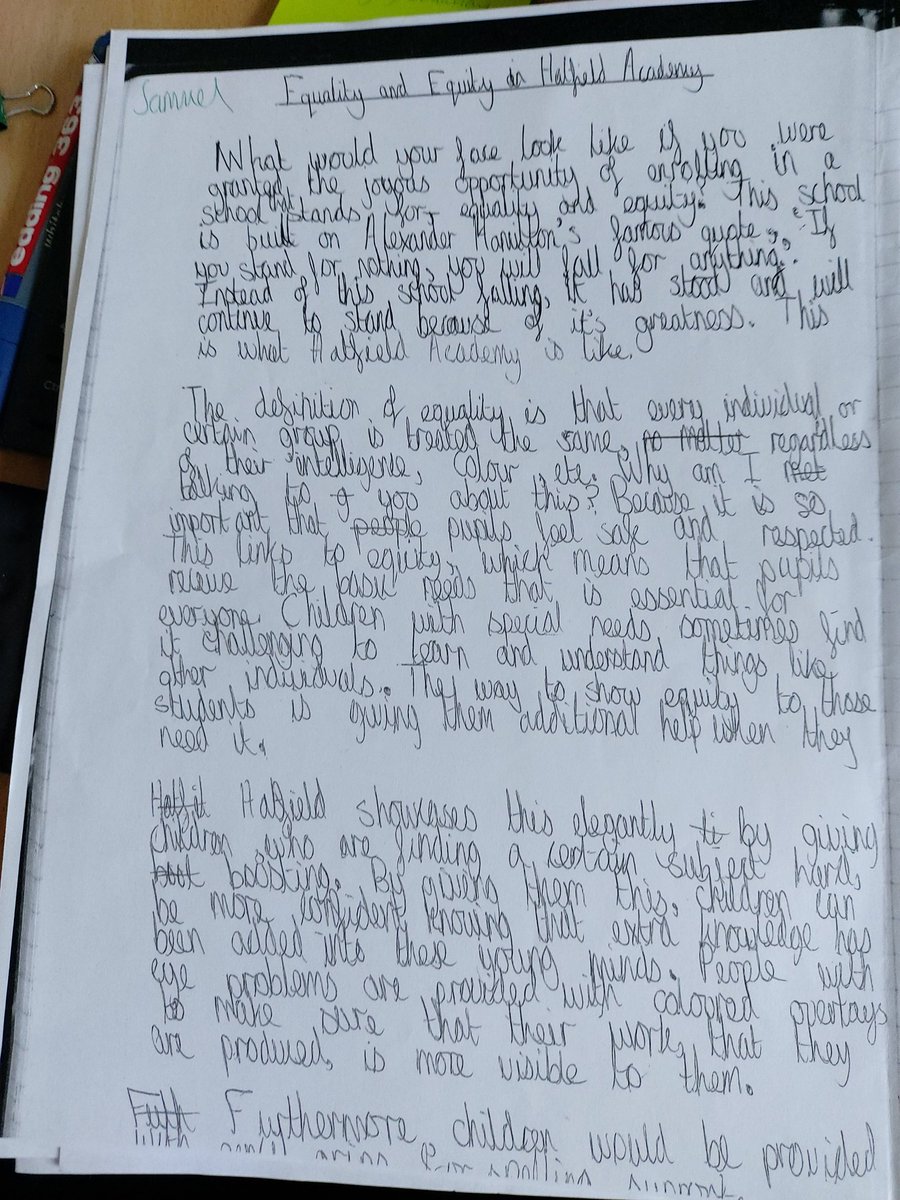 Samuel
Equality and Equity in Hatfield Academy
What would your face look like if you were
granted the joyous opportunity of enrolling in a
school that stands for equality and equity. This school
is built on Alexander Hamilton's famous quote, "If
you stand for nothing, you will fall for anything.
Instead of this school falling, it has stood and will
continue to stand because of it's greatness. This
is what Hatfield Academy is like.
The definition of equality is that every individual or
certain group is treated the same, no matter regardless
of their intelligence, colour, etc. Why am I
talking to you about this? Because it is so
important that people pupils feel safe and respected.
This links to equity, which means that pupils
recieve the basic needs that is essential for
everyone. Children with special needs, sometimes find
it challenging to learn and understand things like
other individuals. The way to show equity to those
students is giving them additional help when they
need it.
Hatfield showcases this elegantly by giving
children, who are finding a certain subject hard,
boosting. By giving them this, children can
be more confident knowing that extra knowledge has
been added into these young minds. People with
eye problems are provided with coloured overlays
to make sure that their work, that they
are produced, is more visible to them.
Furthermore, children would be provided
edding 363